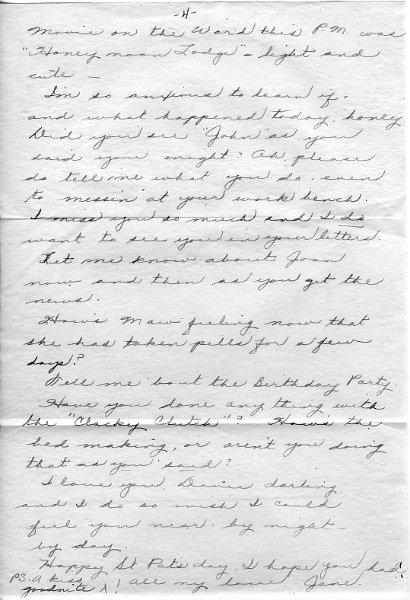 -4-
Movie on the Ward this P.M. was
"Honey moon Lodge" - light and
cute -
I'm so anxious to learn if.
and what happened today, honey
Did you see "John" as you
said you might? Ah, please
do tell me what you do - even
to messin' at your work bench.
I miss you so much and I do
want to see you in your letters.
Let me know about Joan
now and then as you get the
news.
How's Maw feeling now that
she has taken pills for a few
days?
Tell me 'bout the Birthday Party
Have you done anything with
the "Clacky Clutch"? How's the
bed making, or aren't you doing
that as you said?
I love you, darling
and I do so wish I could
feel you near - by night -
by day.
Happy St Pats day. I hope you had
P.S. a kiss
goodnite X! All my love, Jane.